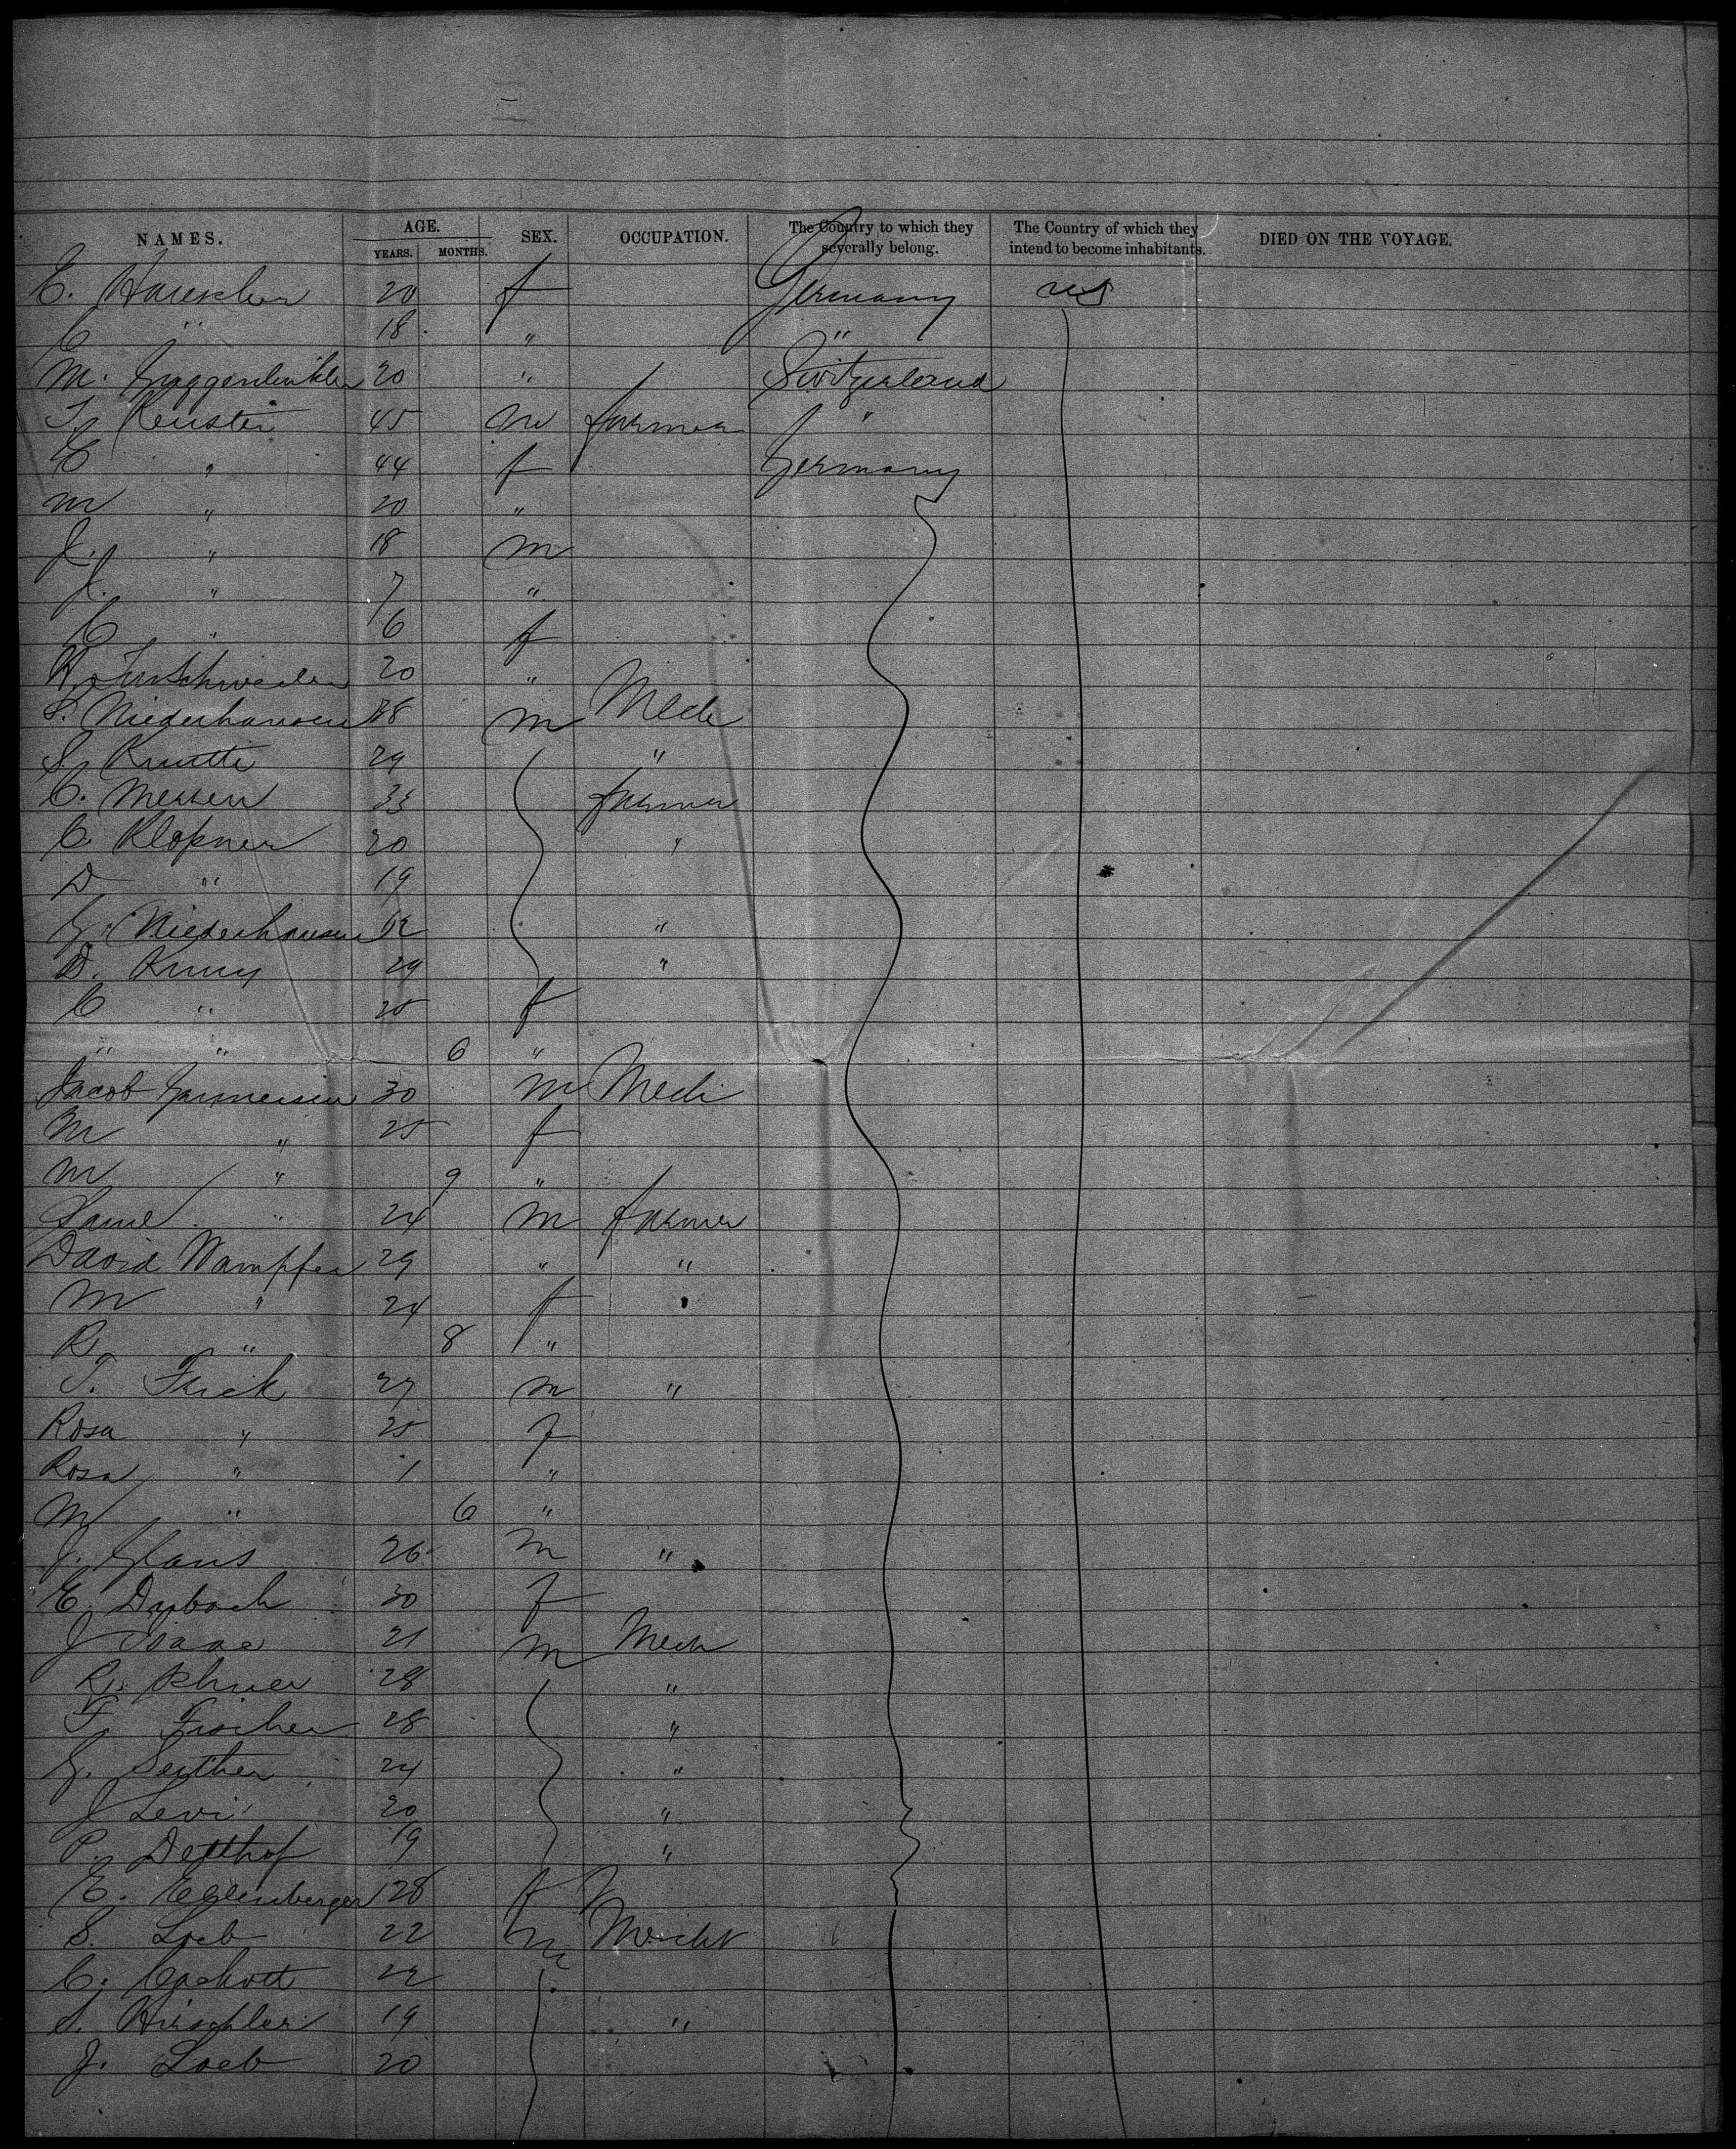 NAMES. AGE. SEX. OCCUPATION. The Country to which they severally belong. The Country of which they intend to become inhabitants. DIED ON THE VOYAGE.
YEARS. MONTHS.
C. 20 f Germany US
C " 18 " "
M. 20 " Switzerland
45 m farmer "
E " 44 f Germany
M " 20 "
J. " 18 m
J. " 7 "
C " 6 f
20 "
S. Niederhausen 38 m Mech
S. Knutti 29 "
C. Messen 33 farmer
C. Klopner 20 "
D " 19
G. Niederhausen 12 "
D. Kuny 29 "
C " 25 f
" " 6 "
Jacob 30 m Mech
M " 25 f
M " 9 "
Saml " 24 m farmer
David Wampfer 29 " "
M " 24 f "
R " 8 "
T. Frick 27 m "
Rosa " 25 f
Rosa " 1 "
M " 6 "
J. Glaus 26 m "
E. Dubach 30 f
J Isaac 21 m Mech
R. 28 "
F. Fischer 28 "
G. Seither 24 "
J Levi 20 "
P. Detthof 19 "
E. Eglenberger 28 f
S. Loeb 22 m Mercht
C. 22
S. Hirschler 19 "
J. Loeb 20